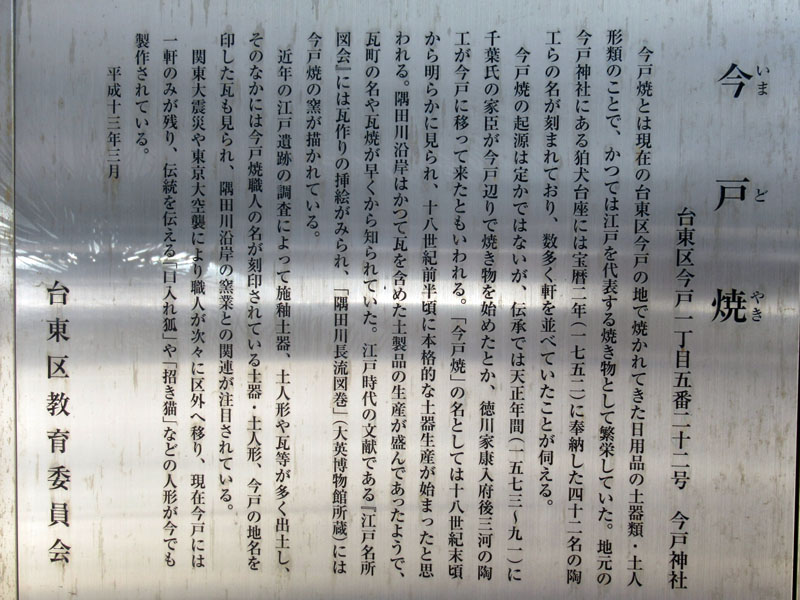 今戸焼
いま ど やき
台東区今戸一丁目五番二十二号 今戸神社
今戸焼とは現在の台東区今戸の地で焼かれてきた日用品の土器類・土人
形類のことで、かつては江戸を代表する焼き物として繁栄していた。地元の
今戸神社にある狛犬台座には宝暦二年(一七五二)に奉納した四十二名の陶
工らの名が刻まれており、数多く軒を並べていたことが伺える。
今戸焼の起源は定かではないが、伝承では天正年間(一五七三～九一)に
千葉氏の家臣が今戸辺りで焼き物を始めたとか、徳川家康入府後三河の陶
工が今戸に移って来たともいわれる。「今戸焼」の名としては十八世紀末頃
から明らかに見られ、十八世紀前半頃に本格的な土器生産が始まったと思
われる。隅田川沿岸はかつて瓦を含めた土製品の生産が盛んであったようで、
瓦町の名や瓦焼が早くから知られていた。江戸時代の文献である『江戸名所
図会』には瓦作りの挿絵がみられ、「隅田川長流図巻」(大英博物館所蔵)には
今戸焼の窯が描かれている。
近年の江戸遺跡の調査によって施釉土器、土人形や瓦等が多く出土し、
そのなかには今戸焼職人の名が刻印されている土器・土人形、今戸の地名を
印した瓦も見られ、隅田川沿岸の窯業との関連が注目されている。
関東大震災や東京大空襲により職人が次々に区外へ移り、現在今戸には
一軒のみが残り、伝統を伝える「口入れ狐」や「招き猫」などの人形が今でも
製作されている。
平成十三年三月
台東区教育委員会